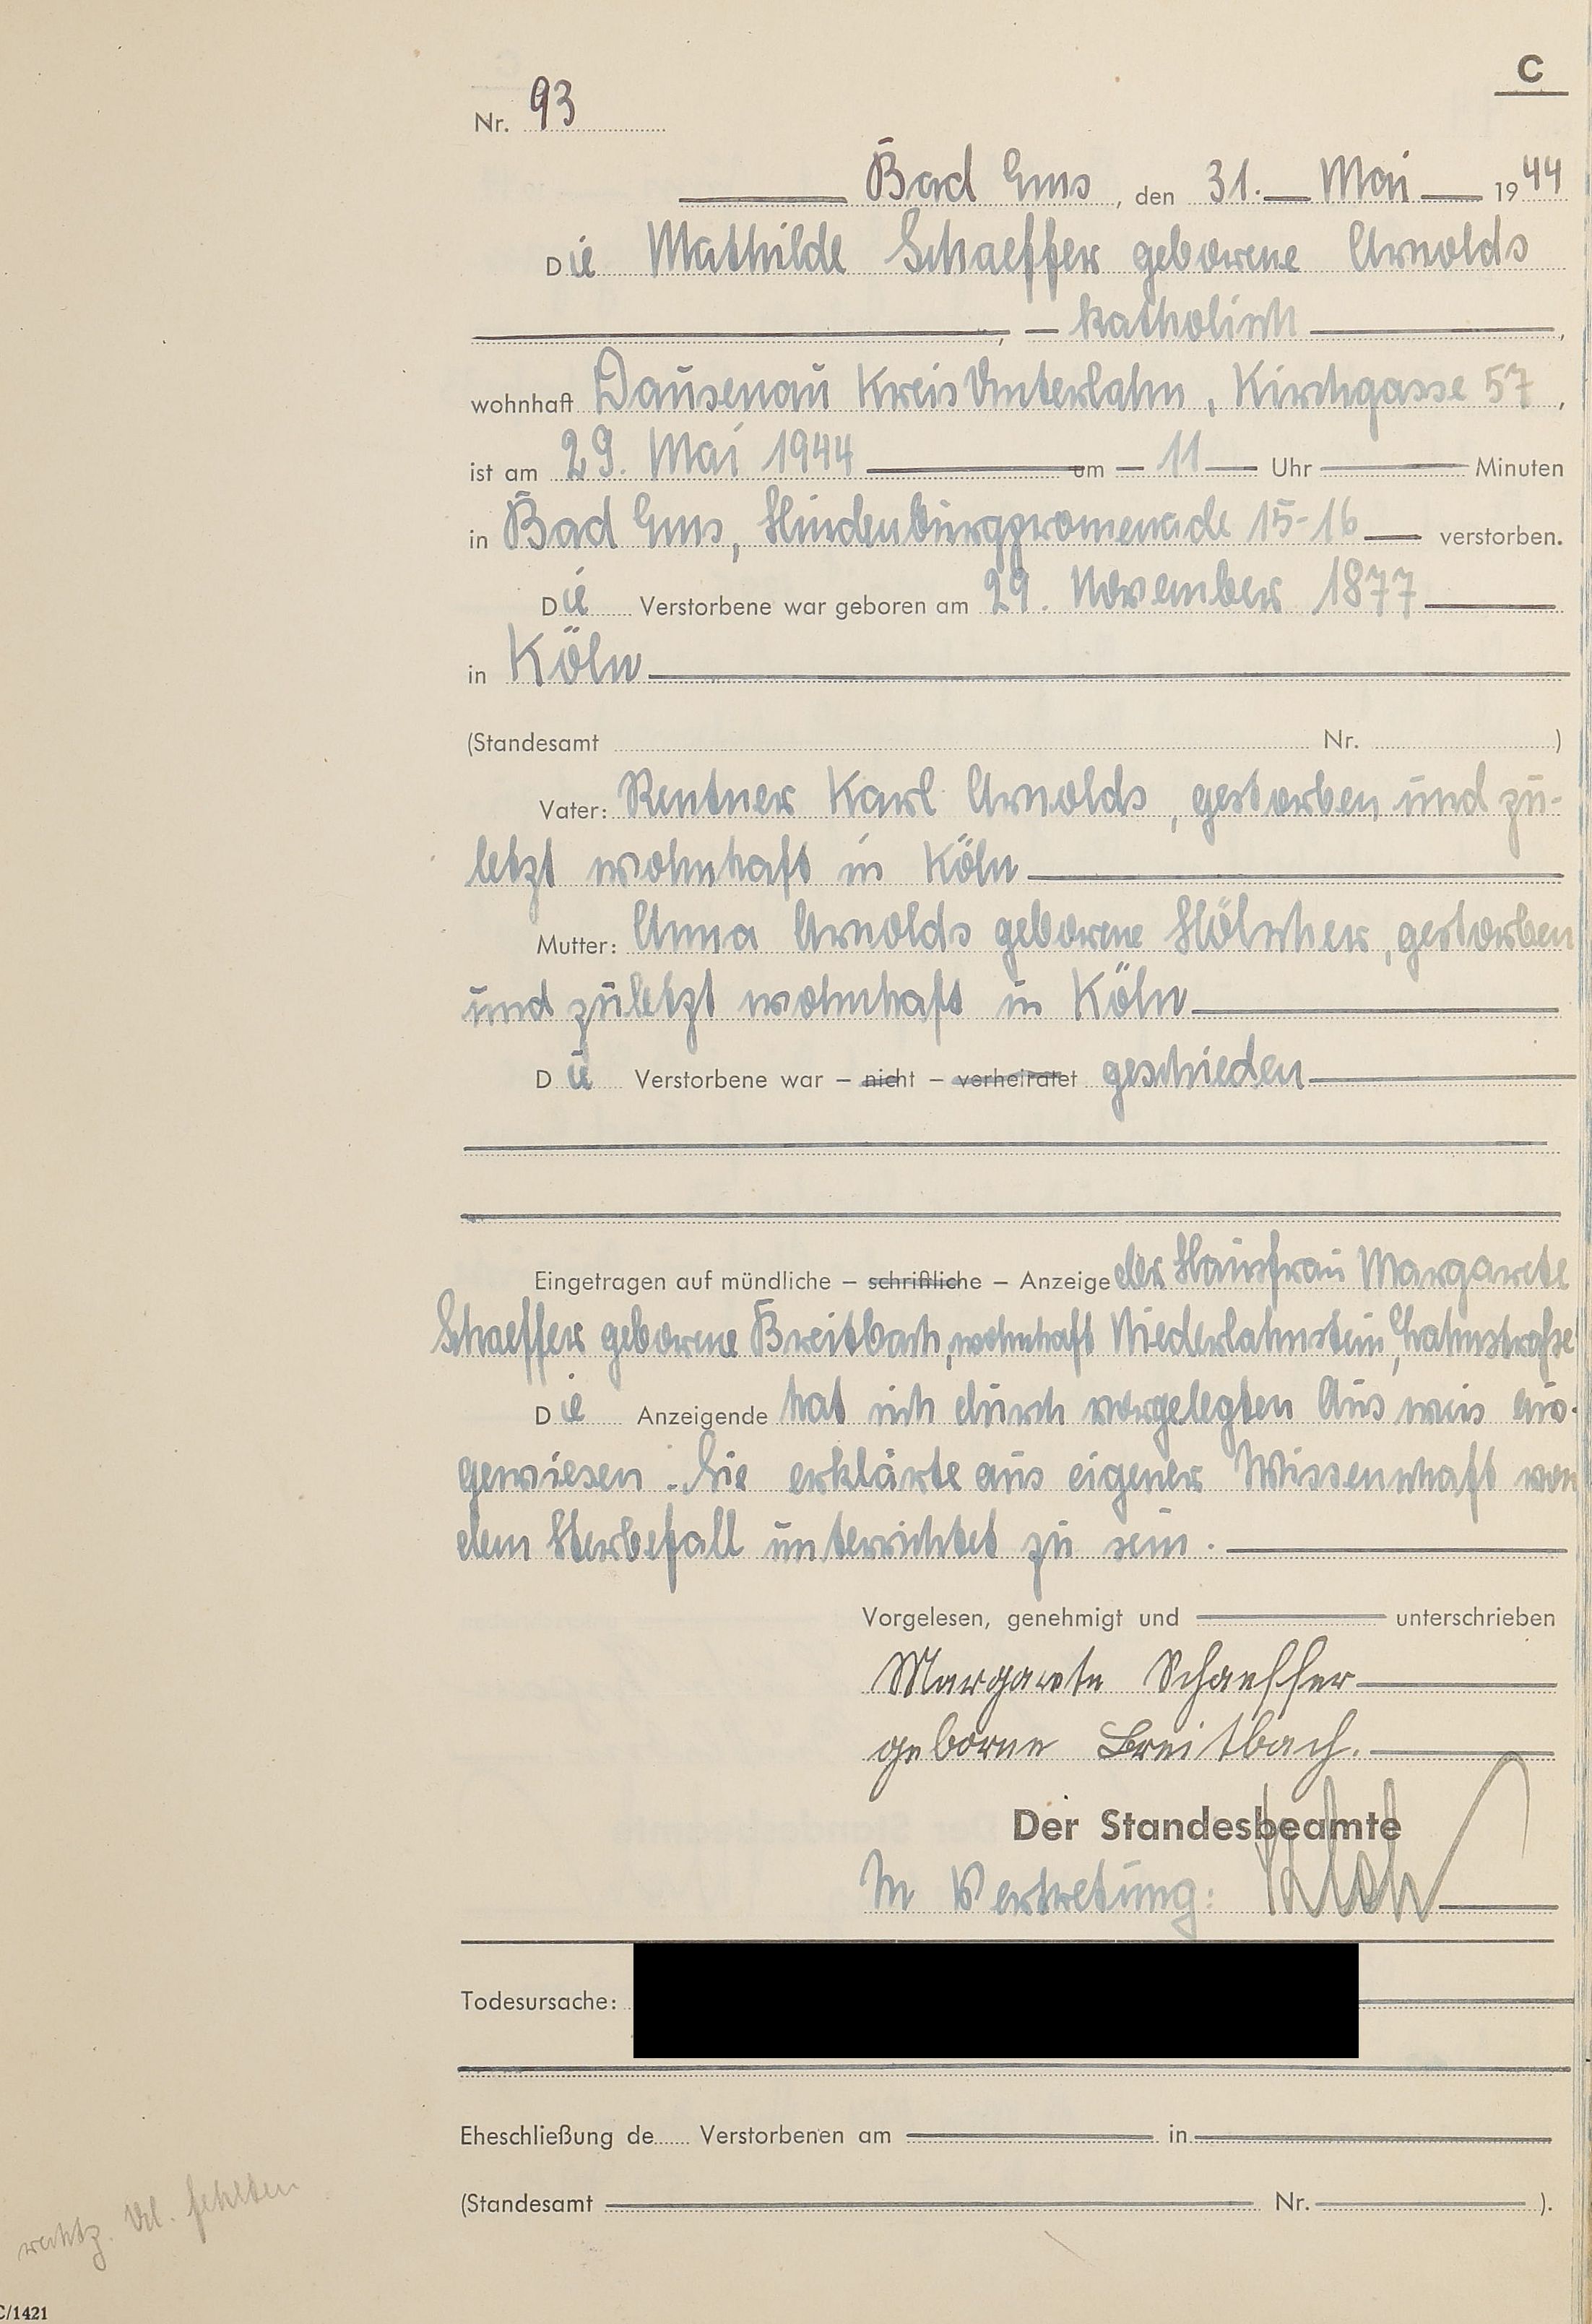 C
Nr. 93
Bad Ems, den 31. Mai 1944
Die Mathilde Schaeffer geborene Arnolds
, katholisch,
wohnhaft Dausenau Kreis Unterlahn, Kirchgasse 57,
ist am 29. Mai 1944 um 11 Uhr Minuten
in Bad Ems, Hindenburgpromenade 15-16 verstorben.
Die Verstorbene war geboren am 29. November 1877
in Köln
(Standesamt Nr. )
Vater: Rentner Karl Arnolds, gestorben und zu-
letzt wohnhaft in Köln
Mutter: Anna Arnolds geborene Hölscher, gestorben
und zuletzt wohnhaft in Köln
Die Verstorbene war – nicht – verheiratet geschieden
Eingetragen auf mündliche – schriftliche – Anzeige der Hausfrau Margarete
Schaeffer geborene Breitbach, wohnhaft Niederlahnstein, Lahnstraße
Die Anzeigende hat sich durch vorgelegten Ausweis aus-
gewiesen. Sie erklärte aus eigener Wissenschaft von
dem Sterbefall unterrichtet zu sein.
Vorgelesen, genehmigt und unterschrieben
Margarete Schaeffer
geborne Breitbach.
Der Standesbeamte
In Vertretung:
Todesursache:
Eheschließung de Verstorbenen am in
(Standesamt Nr. ).
fehlten
C/1421